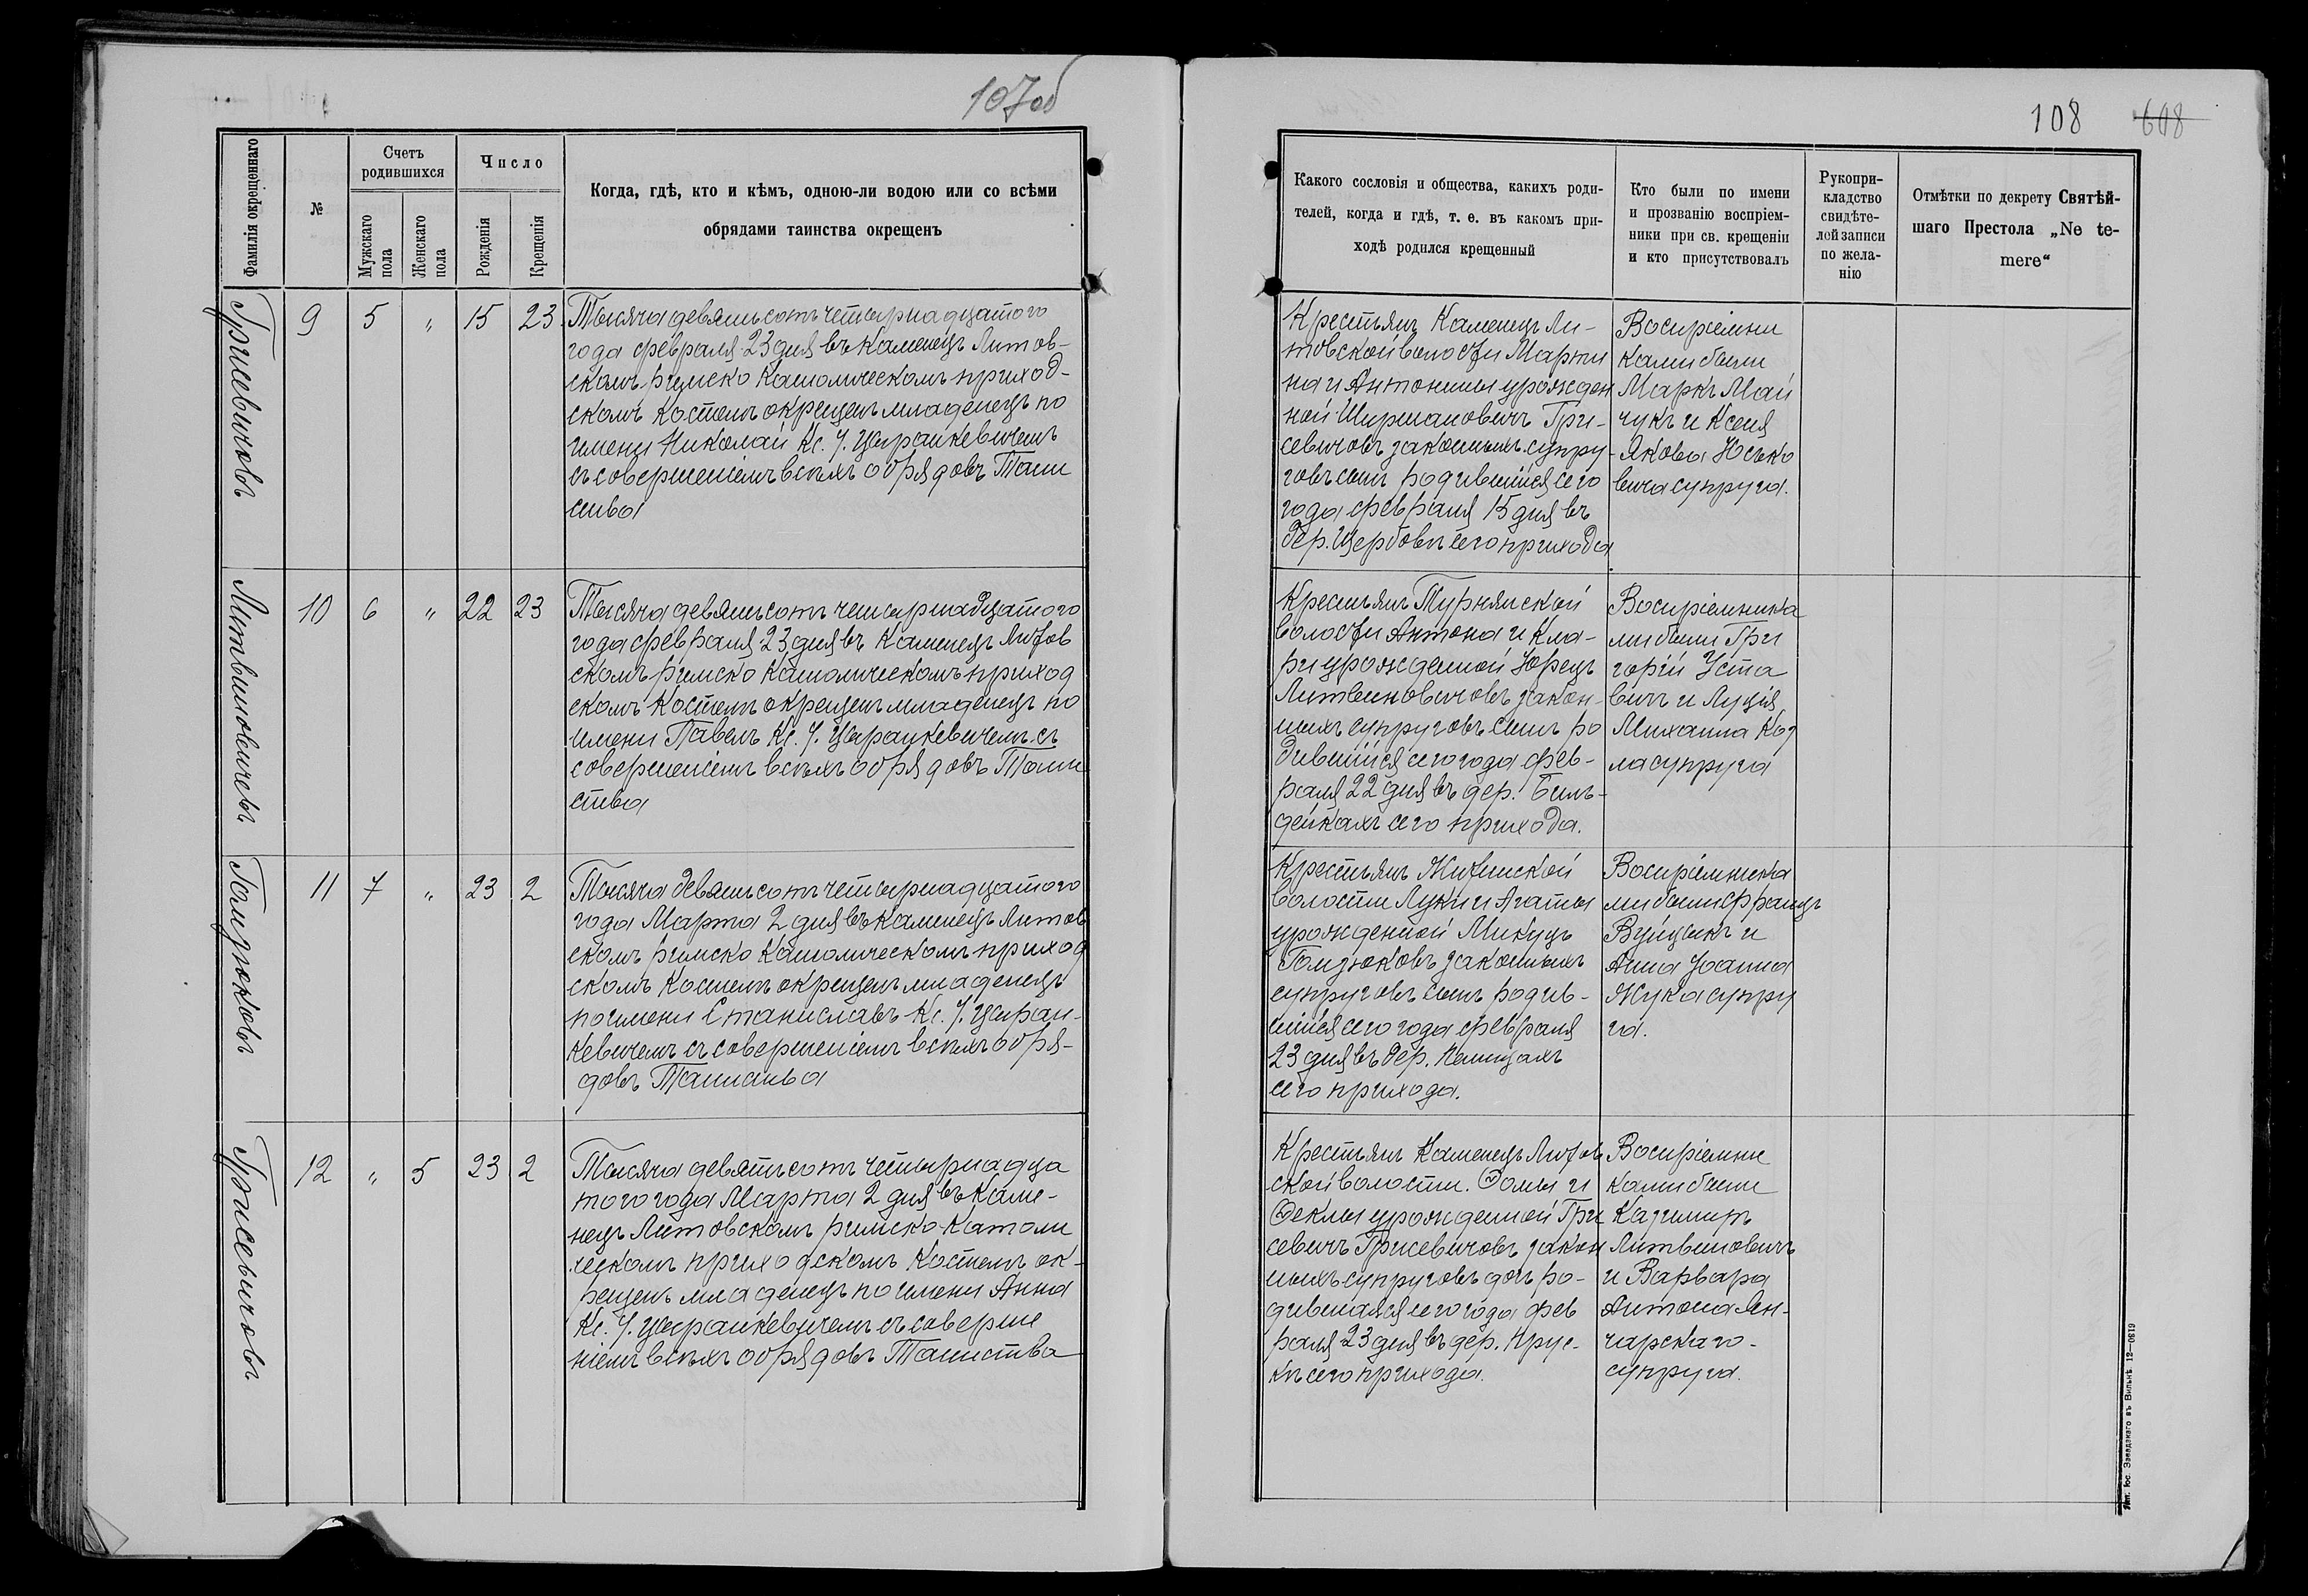 107об
Фамилія окрещеннаго
№
Счетъ
родившихся
Мужскаго
пола
Женскаго
пола
Число
Рожденія
Крещенія
Когда, гдѣ, кто и кѣмъ, одною-ли водою или со всѣми
обрядами таинства окрещенъ
Грисевичовъ
9 5 „ 15 23
Тысяча девятьсотъ четырнадцатого
года февраля 23 дня въ Каменецъ Литов-
скомъ римско Католическомъ приход-
скомъ костелѣ окрещенъ младенецъ по
имени Николай Кс. І. Цыранкевичемъ
съ совершеніемъ всѣхъ обрядовъ Таин
ства
Литвиновичевъ
10 6 „ 22 23
Тысяча девятьсотъ четырнадцатого
года февраля 23 дня въ Каменецъ Литов
скомъ римско Католическомъ приход
скомъ Костелѣ окрещенъ младенецъ по
имени Павелъ Кс. І. Цыранкевичемъ съ
совершеніемъ всѣхъ обрядовъ Таин
ства
Гомзюковъ
11 7 „ 23 2
Тысяча девятьсотъ четырнадцатого
года Марта 2 дня въ Каменецъ Литов
скомъ римско Католическомъ приход
скомъ Костелѣ окрещенъ младенецъ
по имени Станиславъ Кс. І. Цыран-
кевичемъ съ совершеніемъ всѣхъ обря-
довъ Таинства
Грисевичовъ
12 „ 5 23 2
Тысяча девятьсотъ четырнадца
того года Марта 2 дня въ Каме-
нецъ Литовскомъ римско-Католи
ческомъ приходскомъ Костелѣ ок-
рещенъ младенецъ по имени Анна
Кс. І. Цыранкевичемъ съ соверше
ніемъ всѣхъ обрядовъ Таинства
108 608
Какого сословія и общества, какихъ роди-
телей, когда и гдѣ, т. е. въ какомъ при-
ходѣ родился крещенный
Кто были по имени
и прозванію воспріем-
ники при св. крещеніи
и кто присутствовалъ
Рукопри-
кладство
свидѣте-
лей записи
по жела-
нію
Отмѣтки по декрету Святѣй-
шаго Престола „Ne te-
mere“
Крестьянъ Каменецъ Ли-
товской волости Марти
на и Антонины урожден
ной Ширманович Гри-
севичовъ законныхъ супру-
говъ сынъ родившійся сего
года февраля 15 дня въ
дер. Щербовѣ сего прихода
Воспріемни
ками были
Маркъ Май
чукъ и Ксеня
Якова Юсько
вича супруга.
Крестьянъ Турнянской
волости Антона и Кла-
ры урожденной Юрецъ
Литвиновичовъ закон-
ныхъ супруговъ сынъ ро
дившійся сего года фев-
раля 22 дня въ дер. Биль-
дейкахъ сего прихода.
Воспріемника
ми были Гри
горій Уста
вичъ и Луція
Михаила Коз
ла супруга
Крестьянъ Житинской
волости Луки и Агаты
урожденной Микуцъ
Гомзюковъ законныхъ
супруговъ сынъ родив-
шійся сего года февраля
23 дня въ дер. Пелищахъ
сего прихода.
Воспріемника
ми были Францъ
Вуйцикъ и
Анна Іоанна
Жука супру
га.
Крестьянъ Каменецъ Литов
ской волости. Ѳомы и
Ѳеклы урожденной Гри
севичъ Грисевичовъ закон
ныхъ супруговъ дочь ро-
дившаяся сего года фев
раля 23 дня въ дер. Прус-
кѣ сего прихода.
Воспріемни
ками были
Казимиръ
Литвиновичъ
и Варвара
Антона Ян-
чарскаго-
супруга.
Тип. Іос. Завадзкаго въ Вильнѣ. 12—0619